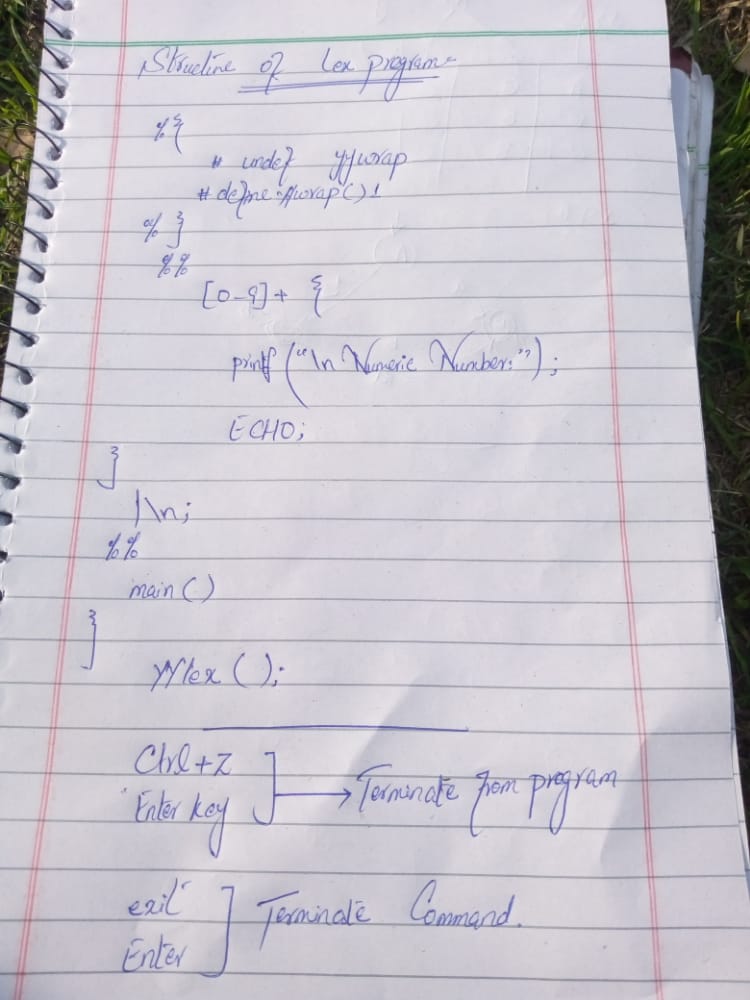 Structure of Lex program
%{
# undef yywrap
# define yywrap() 1
% }
%%
[0-9]+ {
printf ("\n Numeric Number:");
ECHO;
}
|\n;
%%
main ()
}
yylex ();
Ctrl+Z
Enter key
Terminate from program
exit
Enter
Terminate Command.